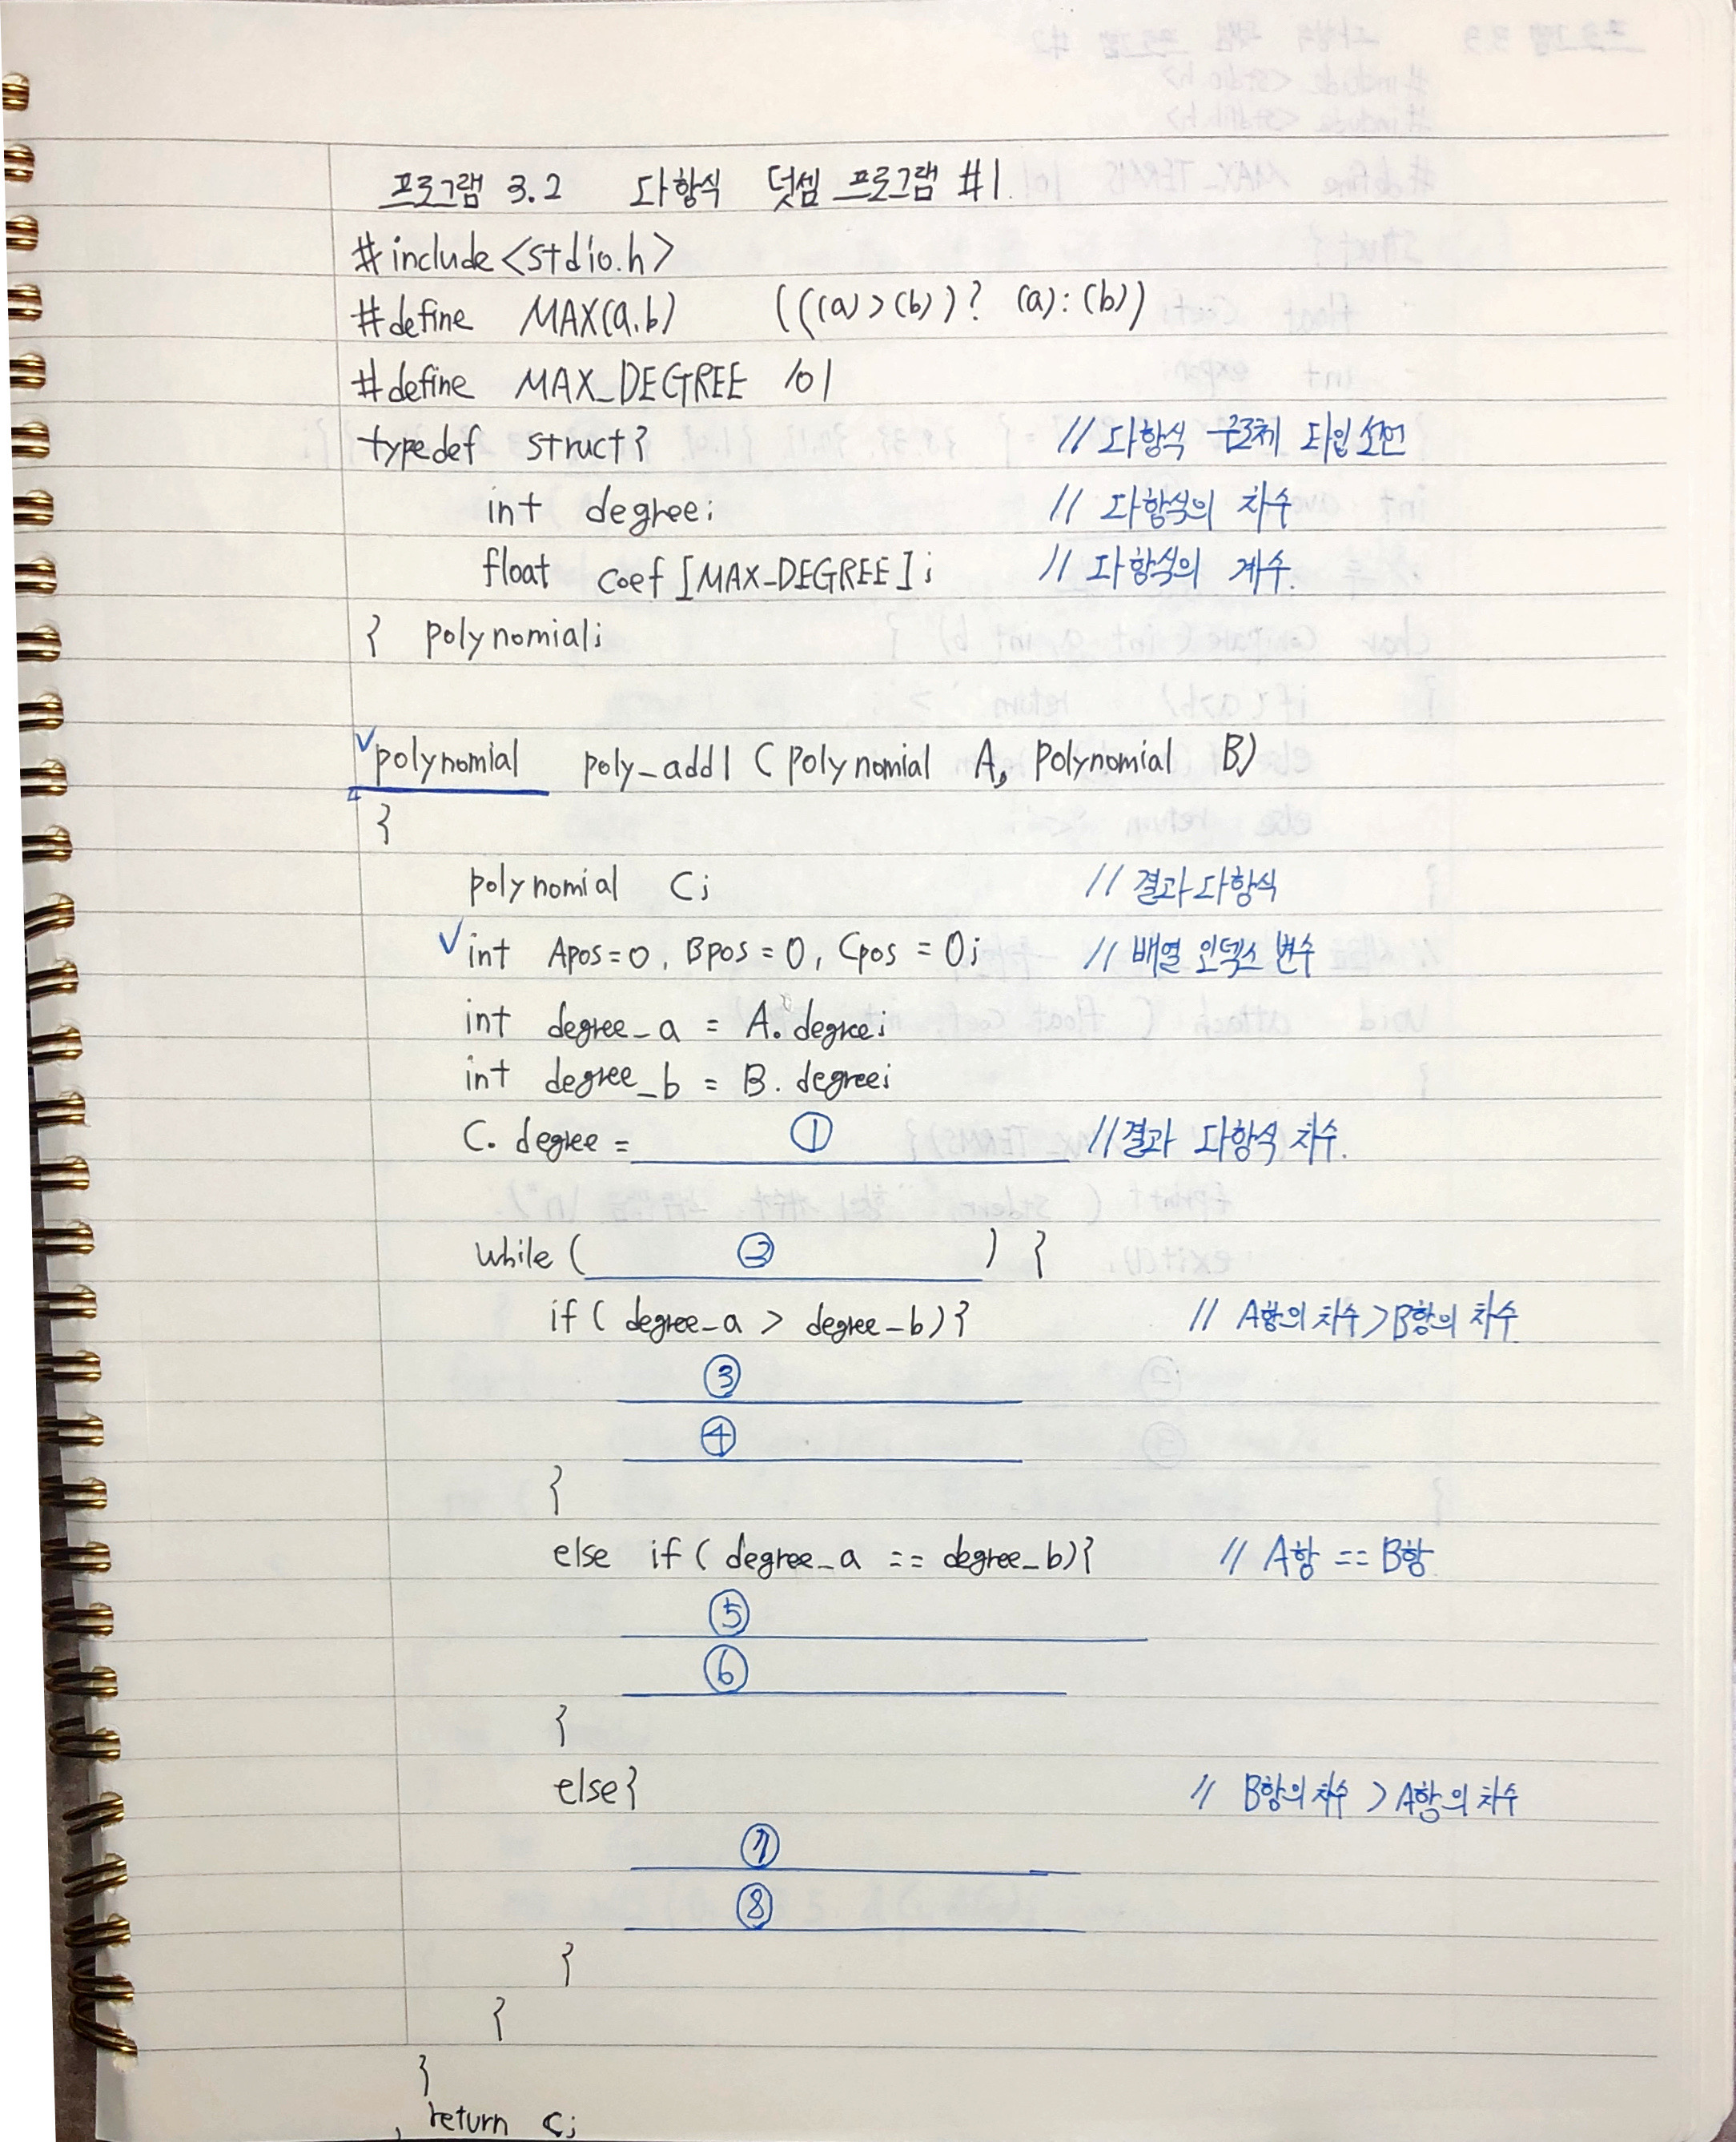 프로그램 3.2 다항식 덧셈 프로그램 #1.
#include<stdio.h>
#define MAX(a,b) (((a)>(b))? (a):(b))
#define MAX_DEGREE 101
typedef struct{ // 다항식 구조체 타입 선언
int degree; // 다항식의 차수
float coef[MAX_DEGREE]; // 다항식의 계수.
} polynomial;
✓polynomial poly_add1 (polynomial A, polynomial B)
{
polynomial C; // 결과 다항식
✓int Apos=0, Bpos=0, Cpos=0; // 배열 인덱스 변수
int degree_a = A.degree;
int degree_b = B.degree;
C.degree = ① // 결과 다항식 차수.
while ( ② ) {
if ( degree_a > degree_b) { // A항의 차수 > B항의 차수
③
④
}
else if ( degree_a == degree_b) { // A항 == B항
⑤
⑥
}
else { // B항의 차수 > A항의 차수
⑦
⑧
}
}
}
return C;